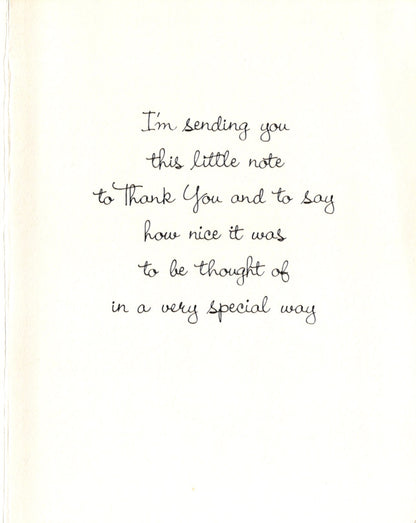 I'm sending you
this little note
to Thank You and to say
how nice it was
to be thought of
in a very special way